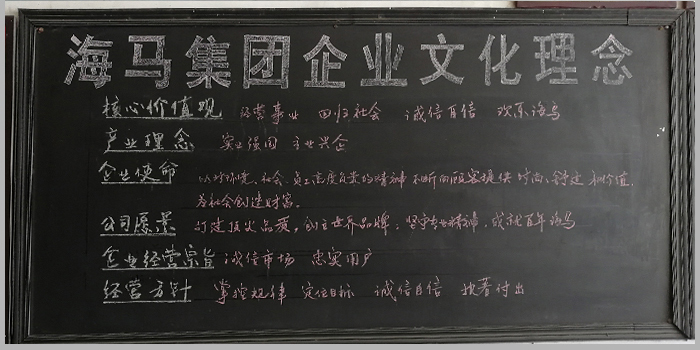 海马集团企业文化理念
核心价值观 经营事业 回归社会 诚信自信 欢乐海马
产业理念 实业强国 主业兴企
企业使命 以对环境、社会、员工高度负责的精神 不断向顾客提供 时尚、舒适 和价值,
为社会创造财富。
公司愿景 打造顶尖品质,创立世界品牌,坚守专业精神,成就百年海马
企业经营宗旨 诚信市场 忠实用户
经营方针 掌控规律 定位目标 诚信自信 执著付出